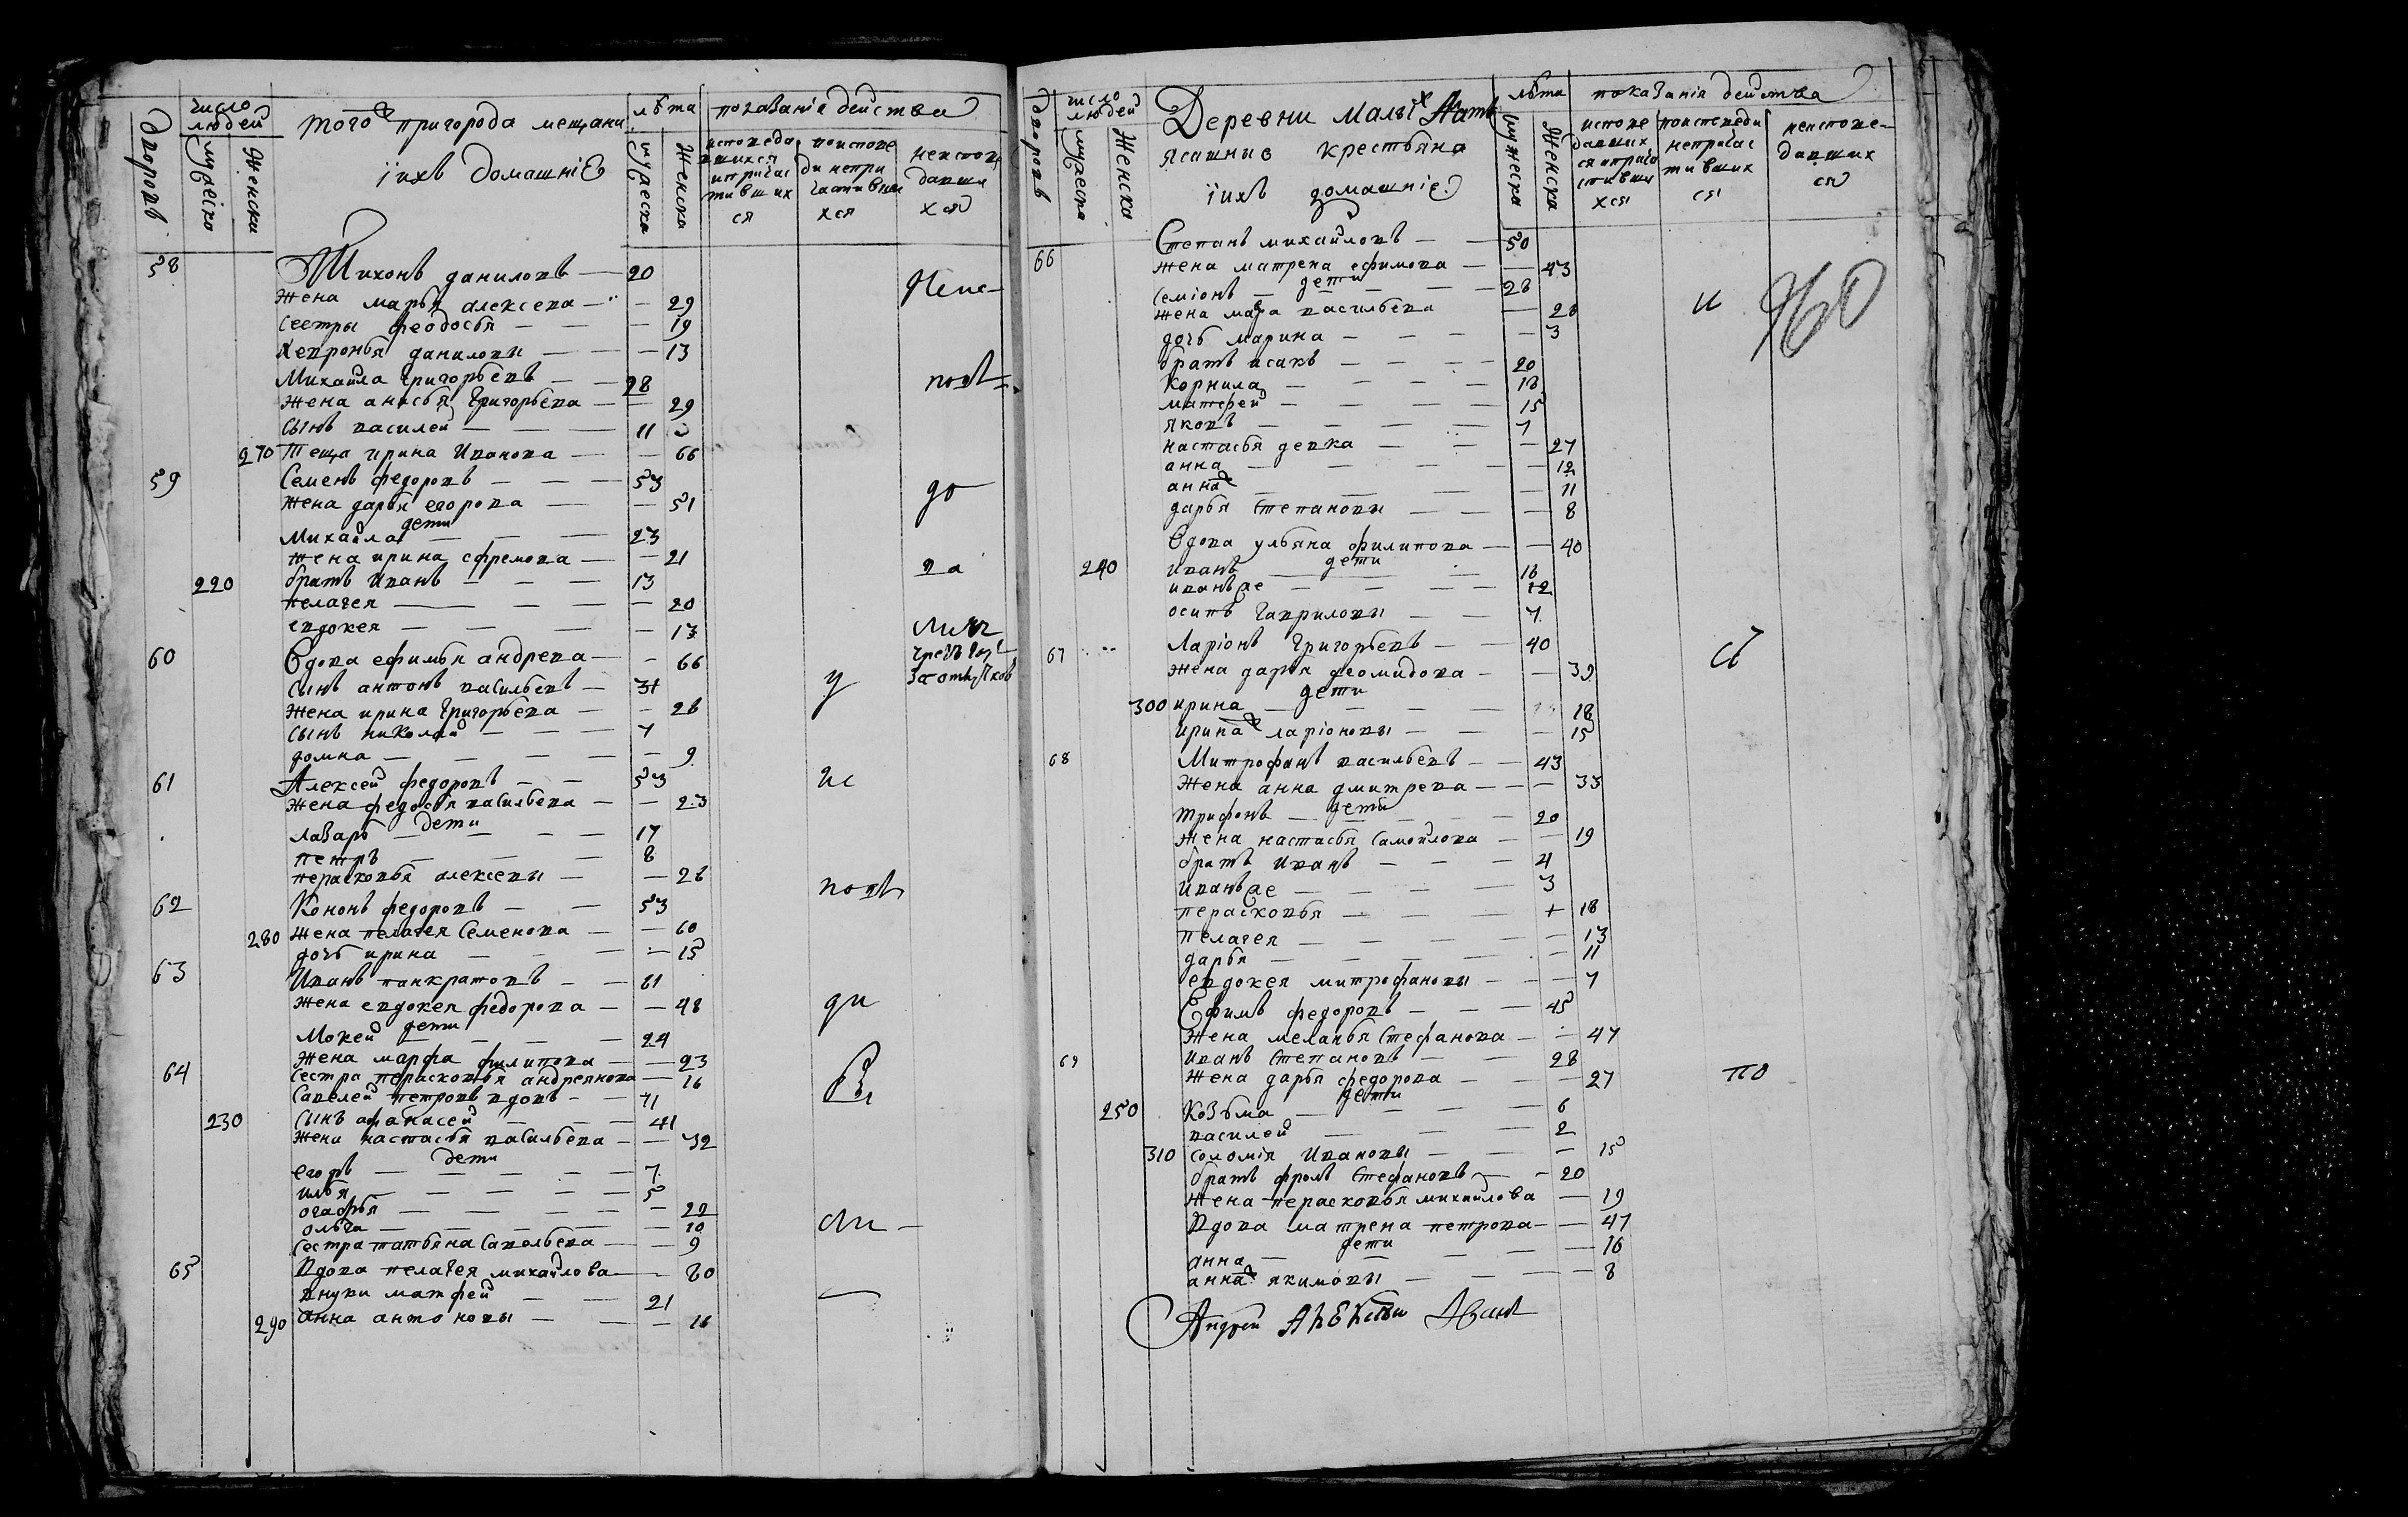 дворовъ
число людей
мужеска
женска
того пригорода мещани
іихъ домашніе
лѣта
мужеска
женска
показанія действа
исповеда
вшихся
ипричас
тивших
ся
поиспове
ди непри
частивши
хся
неиспо
давши
хся
58 Тихонъ даниловъ — 20
жена марья алексева — 29
сестры феодосья — 19
хевронья даниловы — 13
Михайла григорьевъ — 28
жена анисья григорьева — 29
сынъ василей — 11
270 Теща ирина Иванова — 66
59 Семенъ федоровъ — 53
жена дарья егорова — 51
дети
Михайла — 23
жена ирина ефремова — 21
220 братъ Иванъ — 13
пелагея — 20
евдокея — 13
60 вдова ефимья андрева — 66
сынъ антонъ васильевъ — 31
жена ирина григорьева — 26
сынъ николай — 7
домна — 9
61 Алексей федоровъ — 53
жена федосья васильева — 23
дети
лазарь — 17
петръ — 8
перасковья алексевы — 26
62 Кононъ федоровъ — 53
280 жена пелагея Семенова — 60
дочь ирина — 15
63 Иванъ панкратовъ — 61
жена евдокея федорова — 48
дети
Мокей — 24
жена марфа филипова — 23
64 сестра перасковья андреянова — 16
Савелей петровъ вдовъ — 71
230 сынъ афанасей — 41
жена настасья васильева — 32
дети
егоръ — 7
илья — 5
огафья — 22
ольга — 10
сестра татьяна Савельева — 9
65 вдова пелагея михайлова — 80
внуки матфей — 21
290 анна антоновы — 16
дворовъ
число людей
мужеска
Женска
Деревни Малых
ясашние крестьяна
іихъ домашніе
лѣта
мужеска
Женска
показанія действа
испове
давших
ся иприча
стивши
хся
поисповеди
непричас
тивших
ся
неиспове-
давших
ся
66 Степанъ михайловъ — 50
жена матрена ефимова — 43
дети
семіонъ — 28
жена васильева — 28
дочь марина — 3
братъ исакъ — 20
корнила — 18
матфей — 15
яковъ — 7
настасья девка — 27
анна — 12
анна — 11
дарья степановы — 8
вдова ульяна филипова — 40
дети
240 иванъ — 16
иванъ же — 12
осипъ гавриловы — 7
67 Ларіонъ григорьевъ — 40
жена дарья деомидова — 39
дети
300 ирина — 18
ирина ларіоновы — 15
68 Митрофанъ васильевъ — 43
жена анна дмитрева — 33
дети
трифонъ — 20
жена настасья самойлова — 19
братъ Иванъ — 4
иванъ же — 3
перасковья — 18
пелагея — 13
дарья — 11
евдокея митрофановы — 7
Ефимъ федоровъ — 45
жена меланья Стефанова — 47
69 иванъ Степановъ — 28
жена дарья федорова — 27
дети
250 козьма — 6
василей — 2
310 соломія Ивановы — 15
братъ фролъ Стефановъ — 20
жена перасковья михайлова — 19
вдова матрена петрова — 47
дети
анна — 16
анна якимовы — 8
Андрей